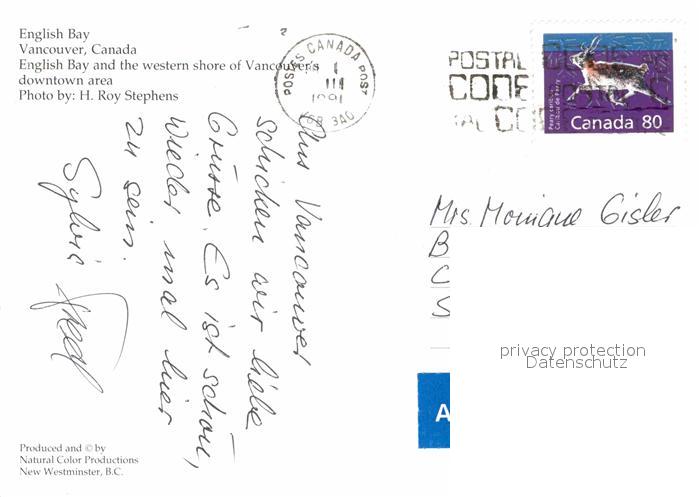 English Bay
Vancouver, Canada
English Bay and the western shore of Vancouver's
downtown area
Photo by: H. Roy Stephens
POSTES CANADA POST
1991
POSTAL
CODE
Peary caribou
Caribou de Peary
Canada 80
Aus Vancouver
schicken wir liebe
Grüsse. Es ist schön,
wieder mal hier
zu sein.
Sylvia
Mrs. Monique Gisler
B
C
S
privacy protection
Datenschutz
A
Produced and © by
Natural Color Productions
New Westminster, B.C.